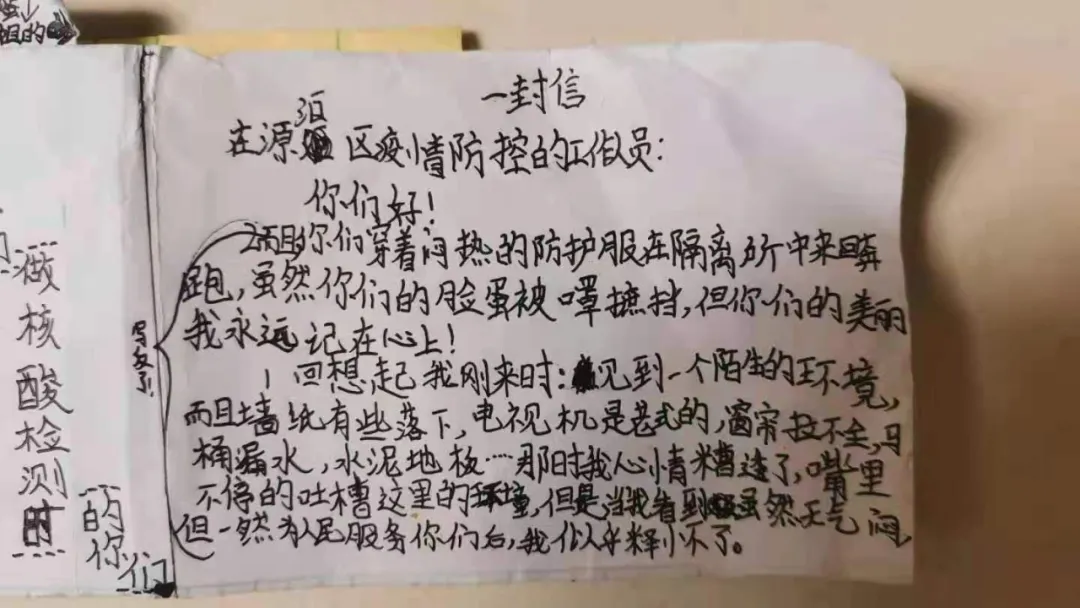 一封信
在源汇区疫情防控的工作员:
你们好!
2而且你们穿着闷热的防护服在隔离所中来回奔
跑,虽然你们的脸蛋被罩摭挡,但你们的美丽
我永远记在心上!
1回想起我刚来时:见到一个陌生的环境,
而且墙纸有些落下,电视机是老式的,窗帘拉不全,马
桶漏水,水泥地板……那时我心情糟透了,嘴里
不停的吐槽这里的环境,但是当我看到虽然天气闷,
但一然为人民服务你们后,我似乎释怀了。
写反了!
做核酸检测时
的你们